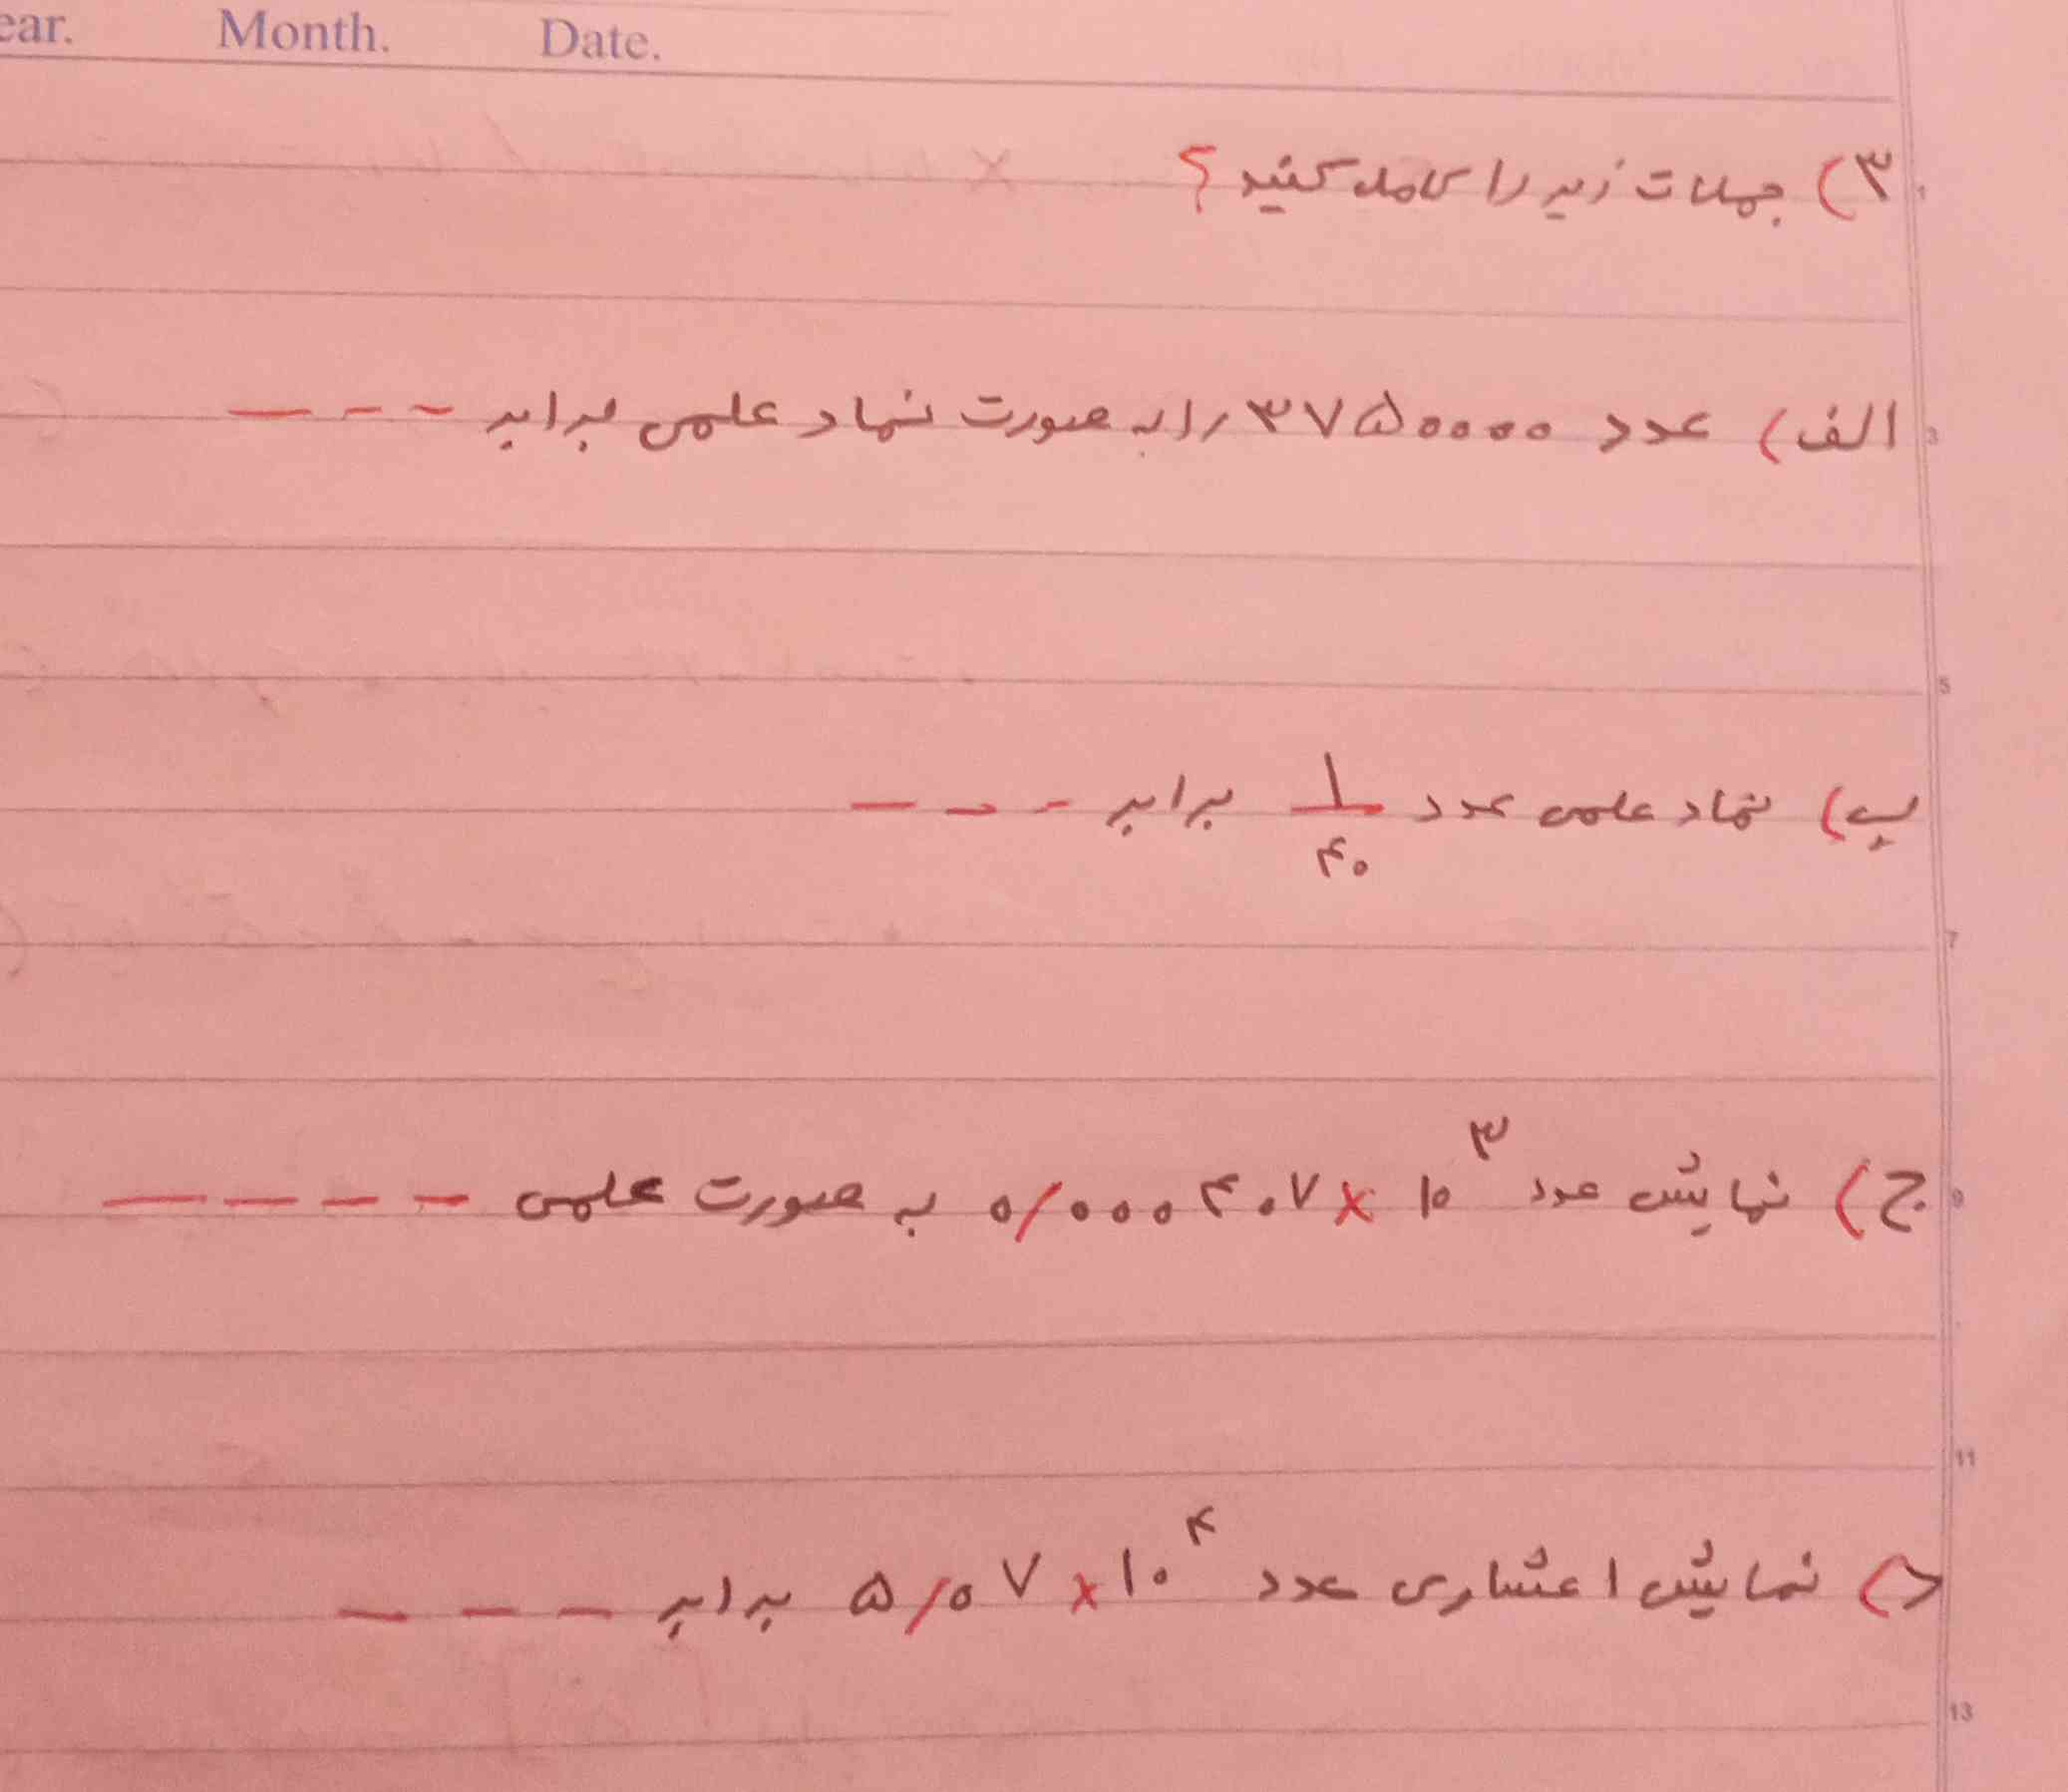 ear. Month. Date.
۳) جملات زیر را کامل کنید؟
1
الف) عدد ۳۷۵۰۰۰۰ را به صورت نماد علمی برابر ---
3
5
ب) نماد علمی عدد ۱/۴۰ برابر ---
7
ج) نمایش عدد ۰/۰۰۰۴۰۷ × ۱۰^۳ به صورت علمی ----
11
د) نمایش اعشاری عدد ۵/۰۷ × ۱۰^۴ برابر ---
13